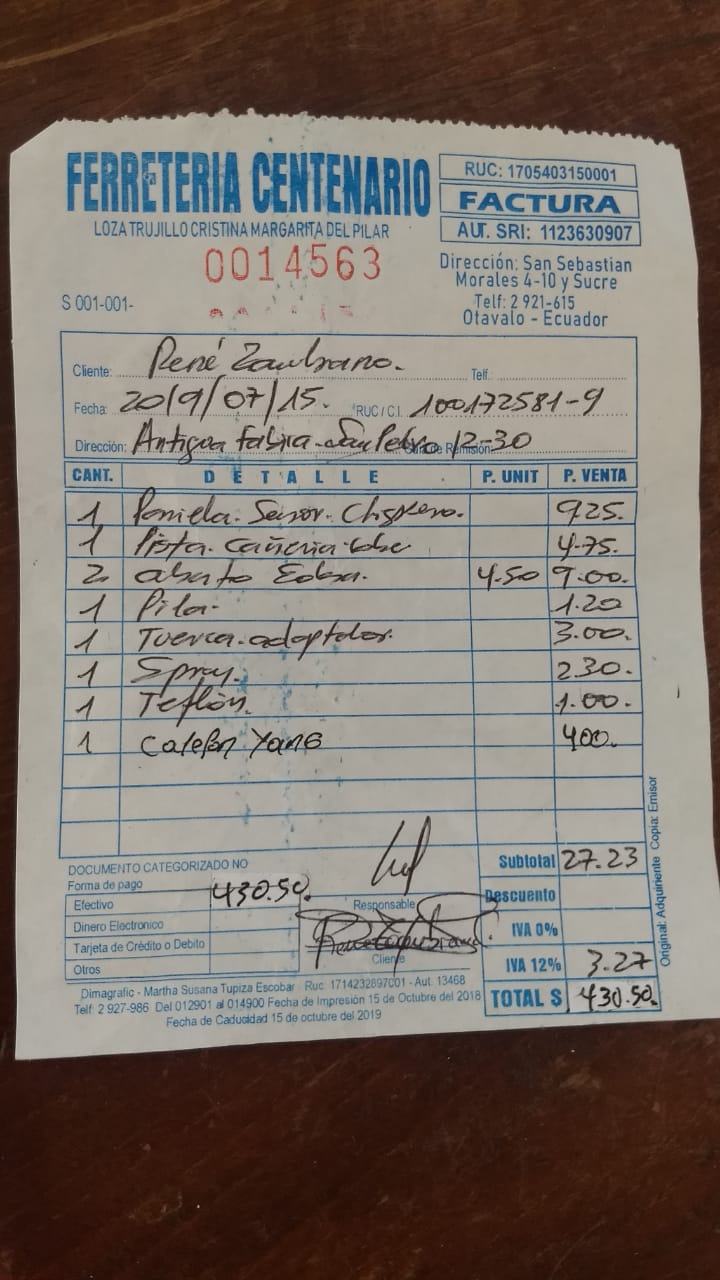 FERRETERIA CENTENARIO
LOZA TRUJILLO CRISTINA MARGARITA DEL PILAR
0014563
S 001-001-
RUC: 1705403150001
FACTURA
AUT. SRI: 1123630907
Dirección: San Sebastian
Morales 4-10 y Sucre
Telf: 2 921-615
Otavalo - Ecuador
Cliente: René Zambrano. Telf.
Fecha: 2019/07/15. RUC / C.I. 100172581-9
Dirección: Antigua fabrica San Pedro 12-30
CANT. DETALLE P. UNIT P. VENTA
1 925.
1 Pista. Cañeria 4.75.
2 abasto 4.50 9.00.
1 Pila. 1.20
1 Tuerca. adaptador. 3.00.
1 Spray. 2.30.
1 Teflón. 1.00.
1 Calefon Yang 400.
DOCUMENTO CATEGORIZADO NO
Forma de pago
Efectivo 430.50.
Dinero Electronico
Tarjeta de Crédito o Debito
Otros
Responsable
Cliente
Subtotal 27.23
Descuento
IVA 0%
IVA 12% 3.27
TOTAL $ 430.50.
Dimagrafic - Martha Susana Tupiza Escobar Ruc: 1714232897001 - Aut. 13468
Telf: 2 927-986 Del 012901 al 014900 Fecha de Impresión 15 de Octubre del 2018
Fecha de Caducidad 15 de octubre del 2019
Original: Adquiriente Copia: Emisor